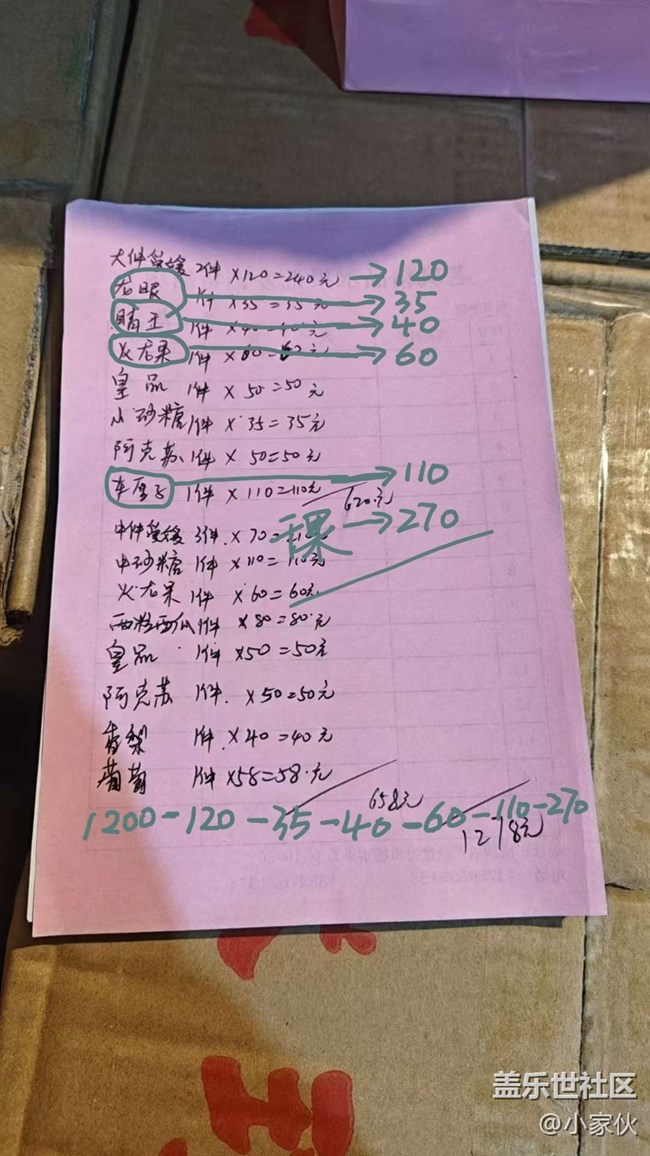 大件爱媛 2件 ×120=240元 → 120
龙眼 1件 ×35=35元 → 35
晴王 1件 ×40=40元 → 40
火龙果 1件 ×60=60元 → 60
皇品 1件 ×50=50元
小砂糖 1件 ×35=35元
阿克苏 1件 ×50=50元
车厘子 1件 ×110=110元 → 110
620元
→ 270
中件爱媛 3件 ×70=210
中砂糖 1件 ×110=110元
火龙果 1件 ×60=60元
西瓜 1件 ×80=80元
皇品 1件 ×50=50元
阿克苏 1件 ×50=50元
香梨 1件 ×40=40元
葡萄 1件 ×58=58元
658元
1200-120-35-40-60-110-270
1278元
盖乐世社区
@小家伙